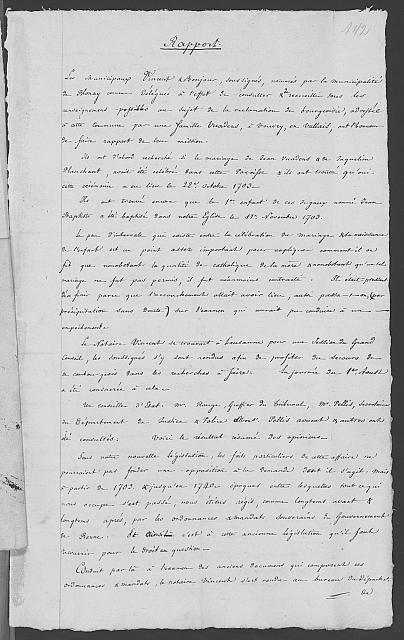 142
Rapport.
Les Municipaux Vincent & Bonjour, soussignés, nommés par la municipalité
de Blonay comme délégués à l'effet de consulter & recueillir tous les
renseignements possibles au sujet de la réclamation de bourgeoisie, adressée
à cette commune par une famille Vuadens, à Vouvry, en Vallais, ont l'honneur
de faire rapport de leur mission.
Ils ont d'abord recherché si le mariage de Jean Vuadens & de Jaqueline
Planchant, avait été célébré dans cette Paroisse & ils ont trouvé qu'oui
cette cérémonie a eu lieu le 22e Octobre 1703.
Ils ont trouvé encore que le 1er enfant de ces conjoints nommé Jean
Baptiste a été baptisé dans notre Eglise le 11e Novembre 1703.
Le peu d'intervale qui existe entre la célébration du mariage & la naissance
de l'enfant est un point assez important pour expliquer comment il se
fit que nonobstant la qualité de catholique de la mère & nonobstant qu'un tel
mariage ne fut pas permis, il fut néanmoins contracté. Il était prudent
d'en finir parce que l'accouchement allait avoir lieu, aussi passa-t-on (par
précipitation sans doute) sur l'examen qui aurait pu conduire à un
empêchement
Le Notaire Vincent se trouvant à Lausanne pour une Session du Grand
Conseil, les soussignés s'y sont rendus afin de profiter du secours de
ce bourgeois dans les recherches à faire. La journée du 1er Août
a été consacrée à cela
Un conseiller d'Etat: Mr. Ruege, Greffier du Tribunal, Mr. Pellis, Secrétaire
du Département de Justice & Police Mons. Pellis avocat & autres ont
été consultés. Voici le résultat résumé des opinions.
Sous notre nouvelle législation, les faits particuliers de cette affaire ne
pourraient pas fonder une opposition à la demande dont il s'agit, mais
à partir de 1703 & jusqu'en 1740 époques entre lesquelles tout ce qui
nous occupe s'est passé, nous étions régis, comme longtems avant &
longtems après, par les ordonnances & mandats souverains du Gouvernement
de Berne. c'est à cette ancienne législation qu'il faut
recourir pour le droit en question
Conduit par là à l'examen des anciens document qui composent ces
ordonnances & mandats, le notaire Vincent s'est rendu au bureau du département
de